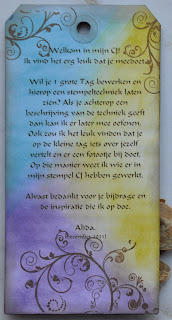 Welkom in mijn CJ!
Ik vind het erg leuk dat je meedoet.
Wil je 1 grote Tag bewerken en
hierop een stempeltechniek laten
zien? Als je achterop een
beschrijving van de techniek geeft
dan kan ik er later mee oefenen.
Ook zou ik het leuk vinden dat je
op de kleine tag iets over jezelf
vertelt en er een fotootje bij doet.
Op die manier weet ik wie er in
mijn stempel CJ hebben gewerkt.
Alvast bedankt voor je bijdrage en
de inspiratie die ik op doe.
Alida.
(december 2011)